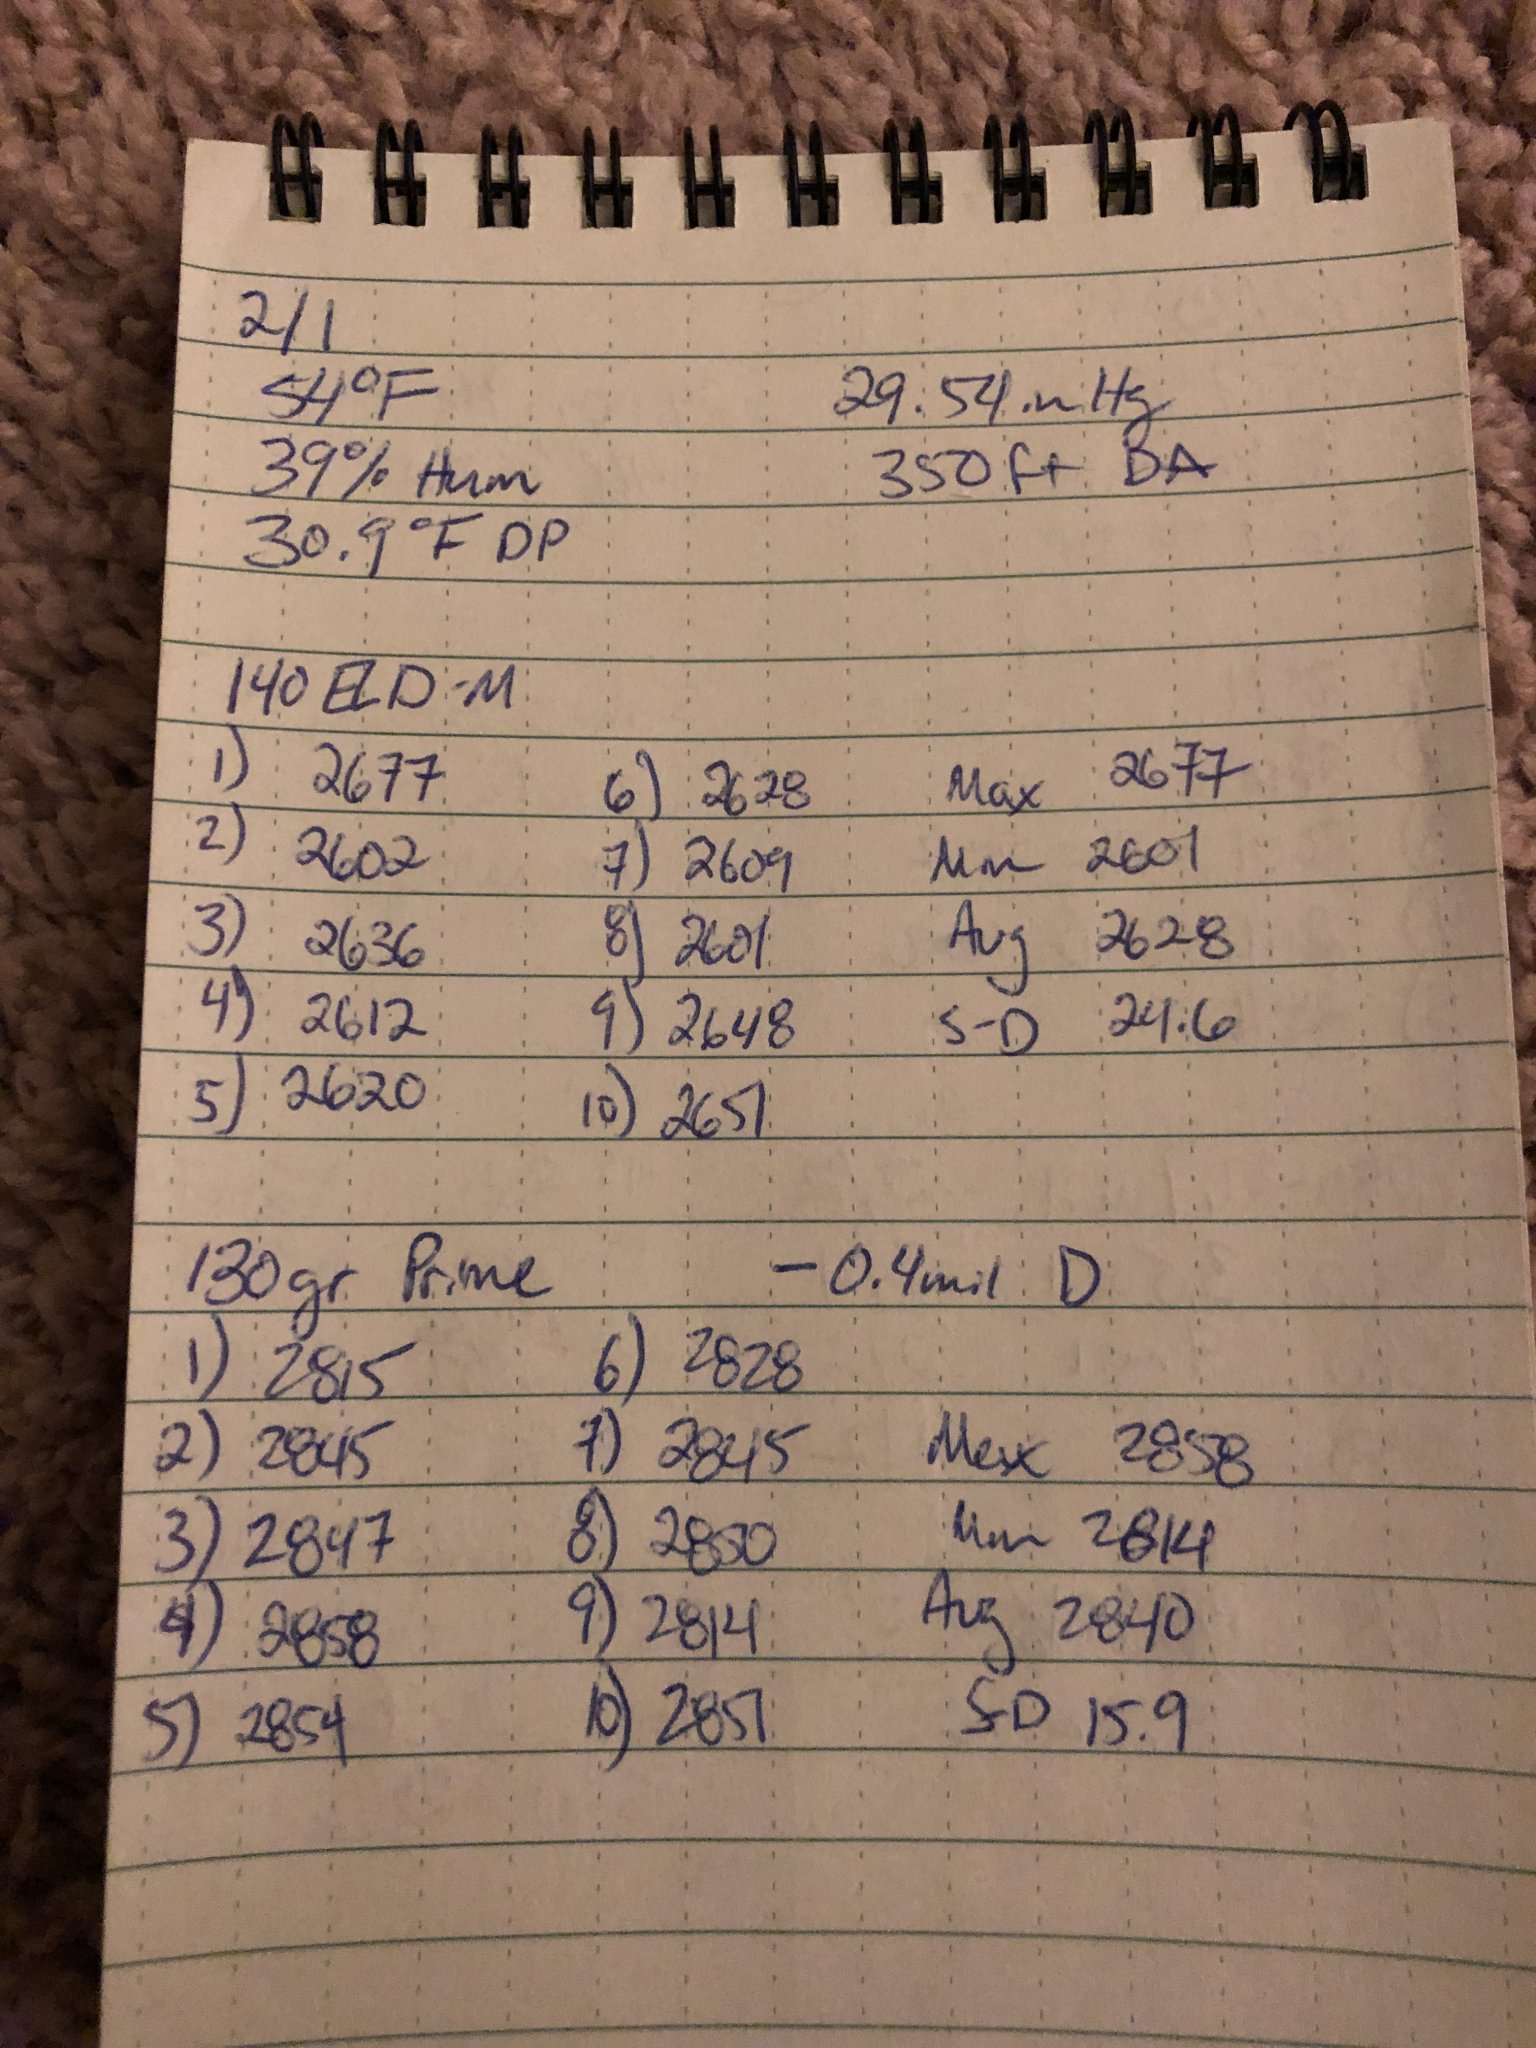 2/1
54°F 29.54 inHg
39% Hum 350ft DA
30.9°F DP
140 ELD-M
1) 2677 6) 2628 Max 2677
2) 2602 7) 2609 Min 2601
3) 2636 8) 2601 Avg 2628
4) 2612 9) 2648 S-D 24.6
5) 2620 10) 2651
130gr Prime -0.4mil D
1) 2815 6) 2828
2) 2845 7) 2845 Max 2858
3) 2847 8) 2850 Min 2814
4) 2858 9) 2814 Avg 2840
5) 2854 10) 2851 S-D 15.9